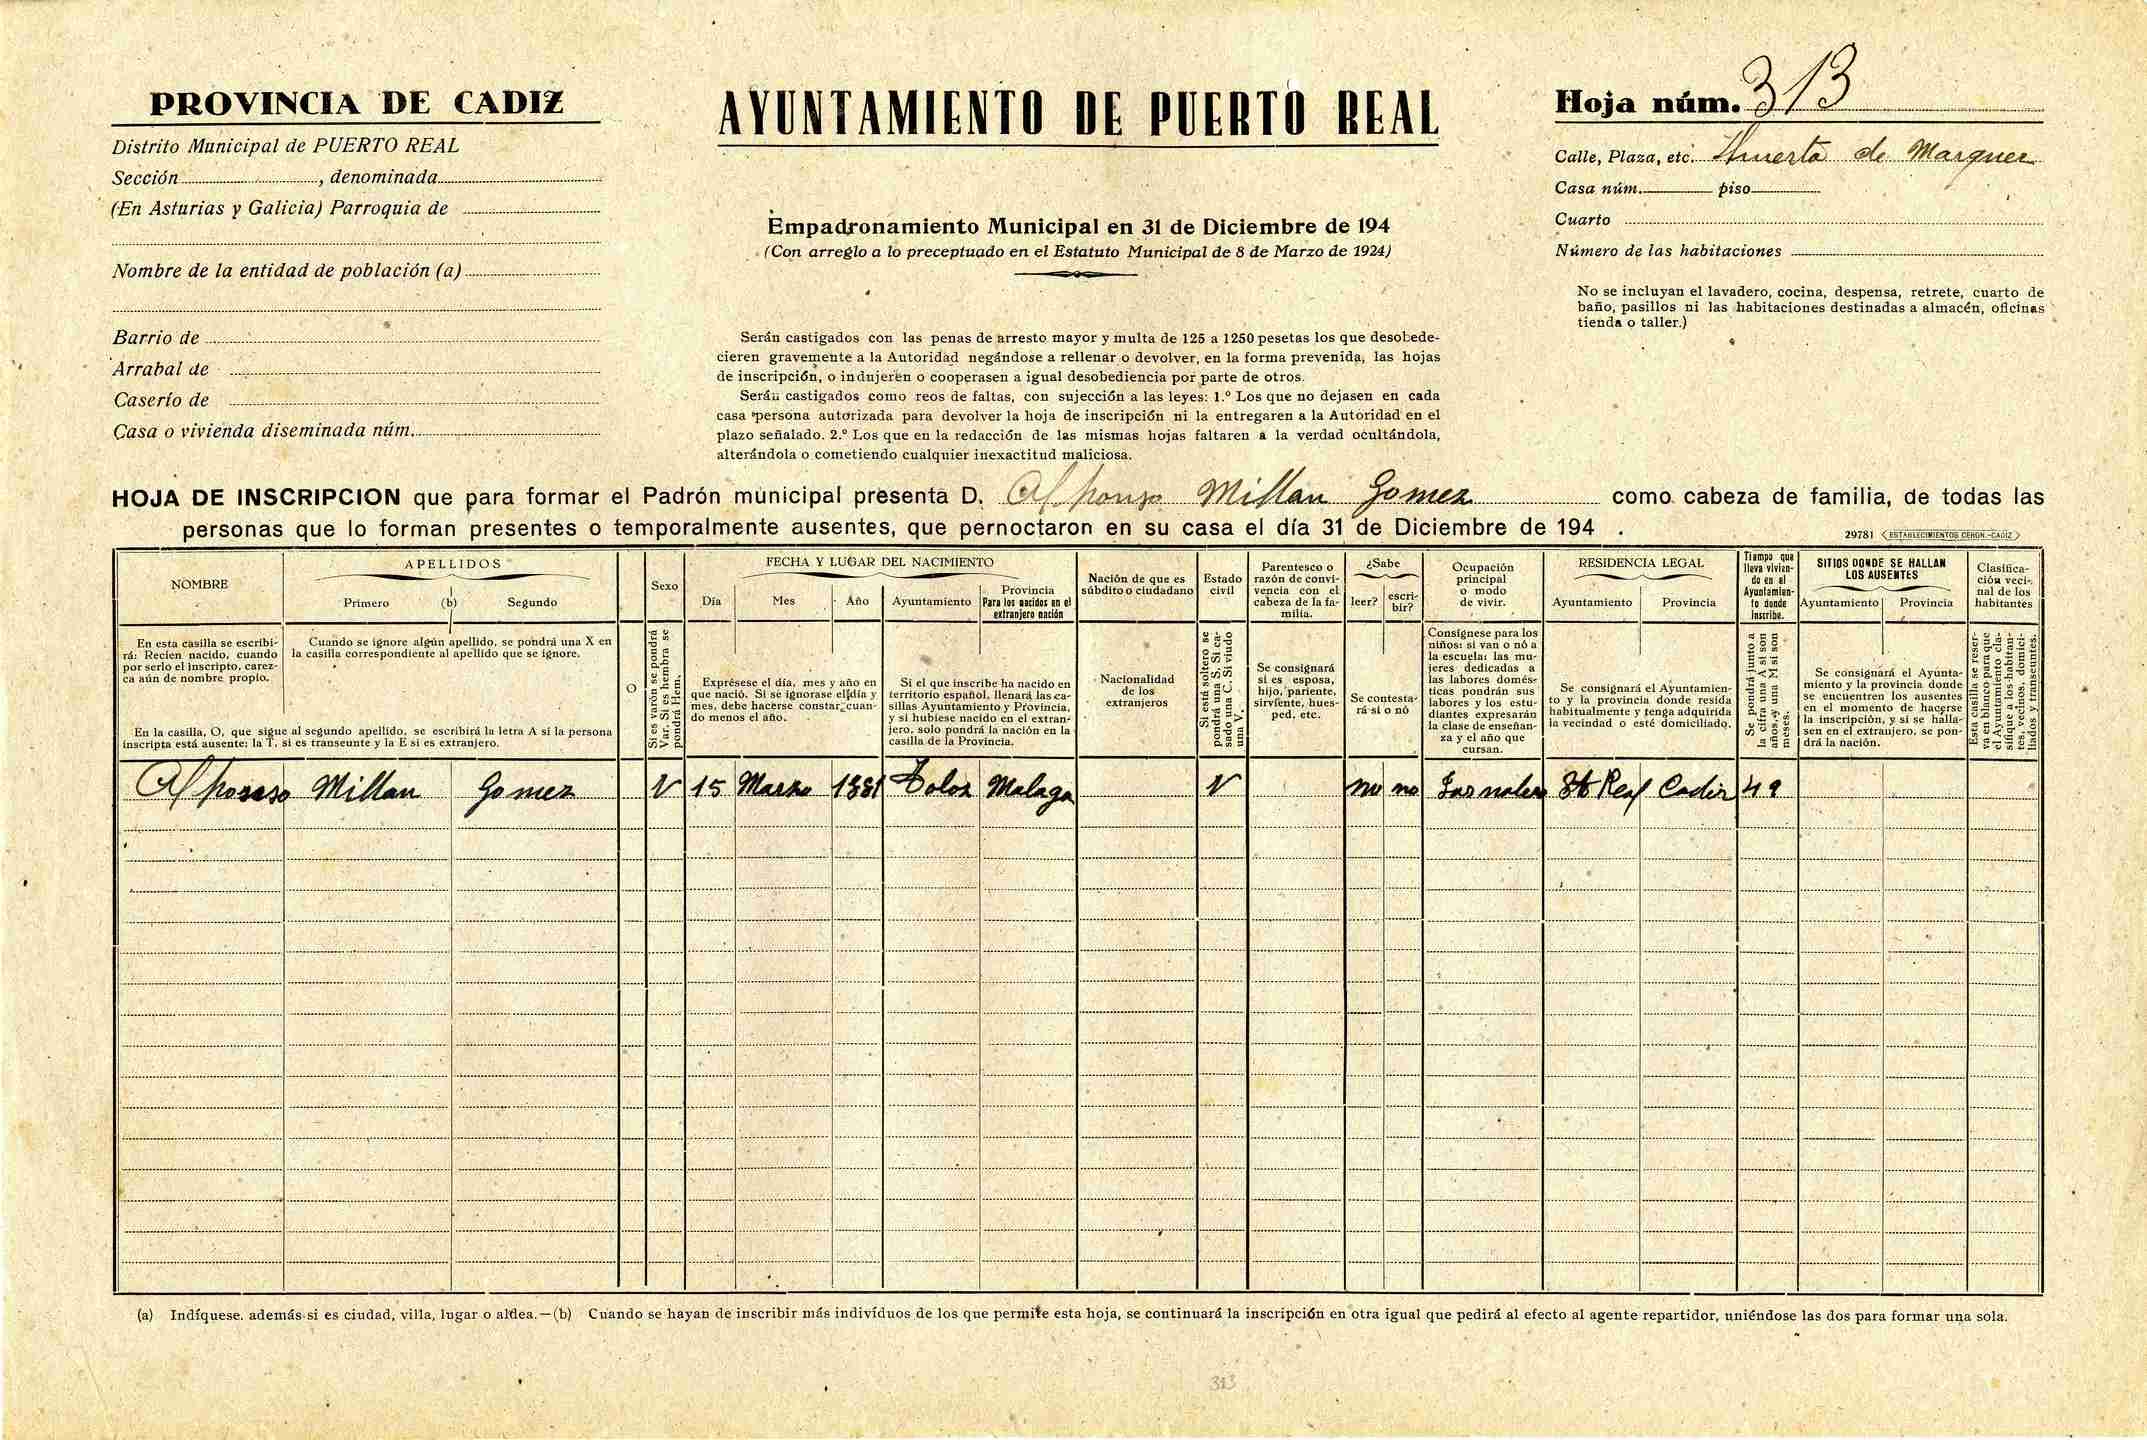 PROVINCIA DE CADIZ
Distrito Municipal de PUERTO REAL
Sección , denominada
(En Asturias y Galicia) Parroquia de
Nombre de la entidad de población (a)
Barrio de
Arrabal de
Caserío de
Casa o vivienda diseminada núm.
AYUNTAMIENTO DE PUERTO REAL
Empadronamiento Municipal en 31 de Diciembre de 194
(Con arreglo a lo preceptuado en el Estatuto Municipal de 8 de Marzo de 1924)
Serán castigados con las penas de arresto mayor y multa de 125 a 1250 pesetas los que desobede-
cieren gravemente a la Autoridad negándose a rellenar o devolver, en la forma prevenida, las hojas
de inscripción, o indujeren o cooperasen a igual desobediencia por parte de otros.
Serán castigados como reos de faltas, con sujección a las leyes: 1.º Los que no dejasen en cada
casa persona autorizada para devolver la hoja de inscripción ni la entregaren a la Autoridad en el
plazo señalado. 2.º Los que en la redacción de las mismas hojas faltaren a la verdad ocultándola,
alterándola o cometiendo cualquier inexactitud maliciosa.
Hoja núm. 313
Calle, Plaza, etc. Huerta de Marquez
Casa núm. piso
Cuarto
Número de las habitaciones
No se incluyan el lavadero, cocina, despensa, retrete, cuarto de
baño, pasillos ni las habitaciones destinadas a almacén, oficinas
tienda o taller.)
HOJA DE INSCRIPCION que para formar el Padrón municipal presenta D. Alfonso Millan Gomez como cabeza de familia, de todas las
personas que lo forman presentes o temporalmente ausentes, que pernoctaron en su casa el día 31 de Diciembre de 194 .
29781 ESTABLECIMIENTOS CERON.-CADIZ
NOMBRE
APELLIDOS
Primero (b) Segundo
Sexo
FECHA Y LUGAR DEL NACIMIENTO
Día Mes Año Ayuntamiento
Provincia
Para los nacidos en el
extranjero nación
Nación de que es
súbdito o ciudadano
Estado
civil
Parentesco o
razón de convi-
vencia con el
cabeza de la fa-
milia.
¿Sabe
leer? escri-
bir?
Ocupación
principal
o modo
de vivir.
RESIDENCIA LEGAL
Ayuntamiento Provincia
Tiempo que
lleva vivien-
do en el
Ayuntamien-
to donde
inscribe.
SITIOS DONDE SE HALLAN
LOS AUSENTES
Ayuntamiento Provincia
Clasifica-
ción veci-
nal de los
habitantes
En esta casilla se escribi-
rá: Recien nacido, cuando
por serlo el inscripto, carez-
ca aún de nombre propio.
Cuando se ignore algún apellido, se pondrá una X en
la casilla correspondiente al apellido que se ignore.
En la casilla, O, que sigue al segundo apellido, se escribirá la letra A si la persona
inscripta está ausente: la T, si es transeunte y la E si es extranjero.
O
Si es varón se pondrá
Var. Si es hembra se
pondrá Hem.
Exprésese el día, mes y año en
que nació. Si se ignorase el día y
mes, debe hacerse constar, cuan-
do menos el año.
Si el que inscribe ha nacido en
territorio español, llenará las ca-
sillas Ayuntamiento y Provincia,
y si hubiese nacido en el extran-
jero, solo pondrá la nación en la
casilla de la Provincia.
Nacionalidad
de los
extranjeros
Si está soltero se
pondrá una S. Si ca-
sado una C. Si viudo
una V.
Se consignará
si es esposa,
hijo, pariente,
sirviente, hues-
ped, etc.
Se contesta-
rá si o nó
Consígnese para los
niños: si van o nó a
la escuela: las mu-
jeres dedicadas a
las labores domés-
ticas pondrán sus
labores y los estu-
diantes expresarán
la clase de enseñan-
za y el año que
cursan.
Se consignará el Ayuntamien-
to y la provincia donde resida
habitualmente y tenga adquirida
la vecindad o esté domiciliado.
Se pondrá junto a
la cifra una A si son
años, y una M si son
meses.
Se consignará el Ayunta-
miento y la provincia donde
se encuentren los ausentes
en el momento de hacerse
la inscripción, y si se halla-
sen en el extranjero, se pon-
drá la nación.
Esta casilla se reser-
va en blanco para que
el Ayuntamiento cla-
sifique a los habitan-
tes, vecinos, domici-
liados y transeuntes.
Alfonso Millan Gomez V 15 Marzo 1881 Tolox Malaga V no no Jornalero Pto Real Cadiz 49
(a) Indíquese. además si es ciudad, villa, lugar o aldea.—(b) Cuando se hayan de inscribir más indivíduos de los que permite esta hoja, se continuará la inscripción en otra igual que pedirá al efecto al agente repartidor, uniéndose las dos para formar una sola.
313